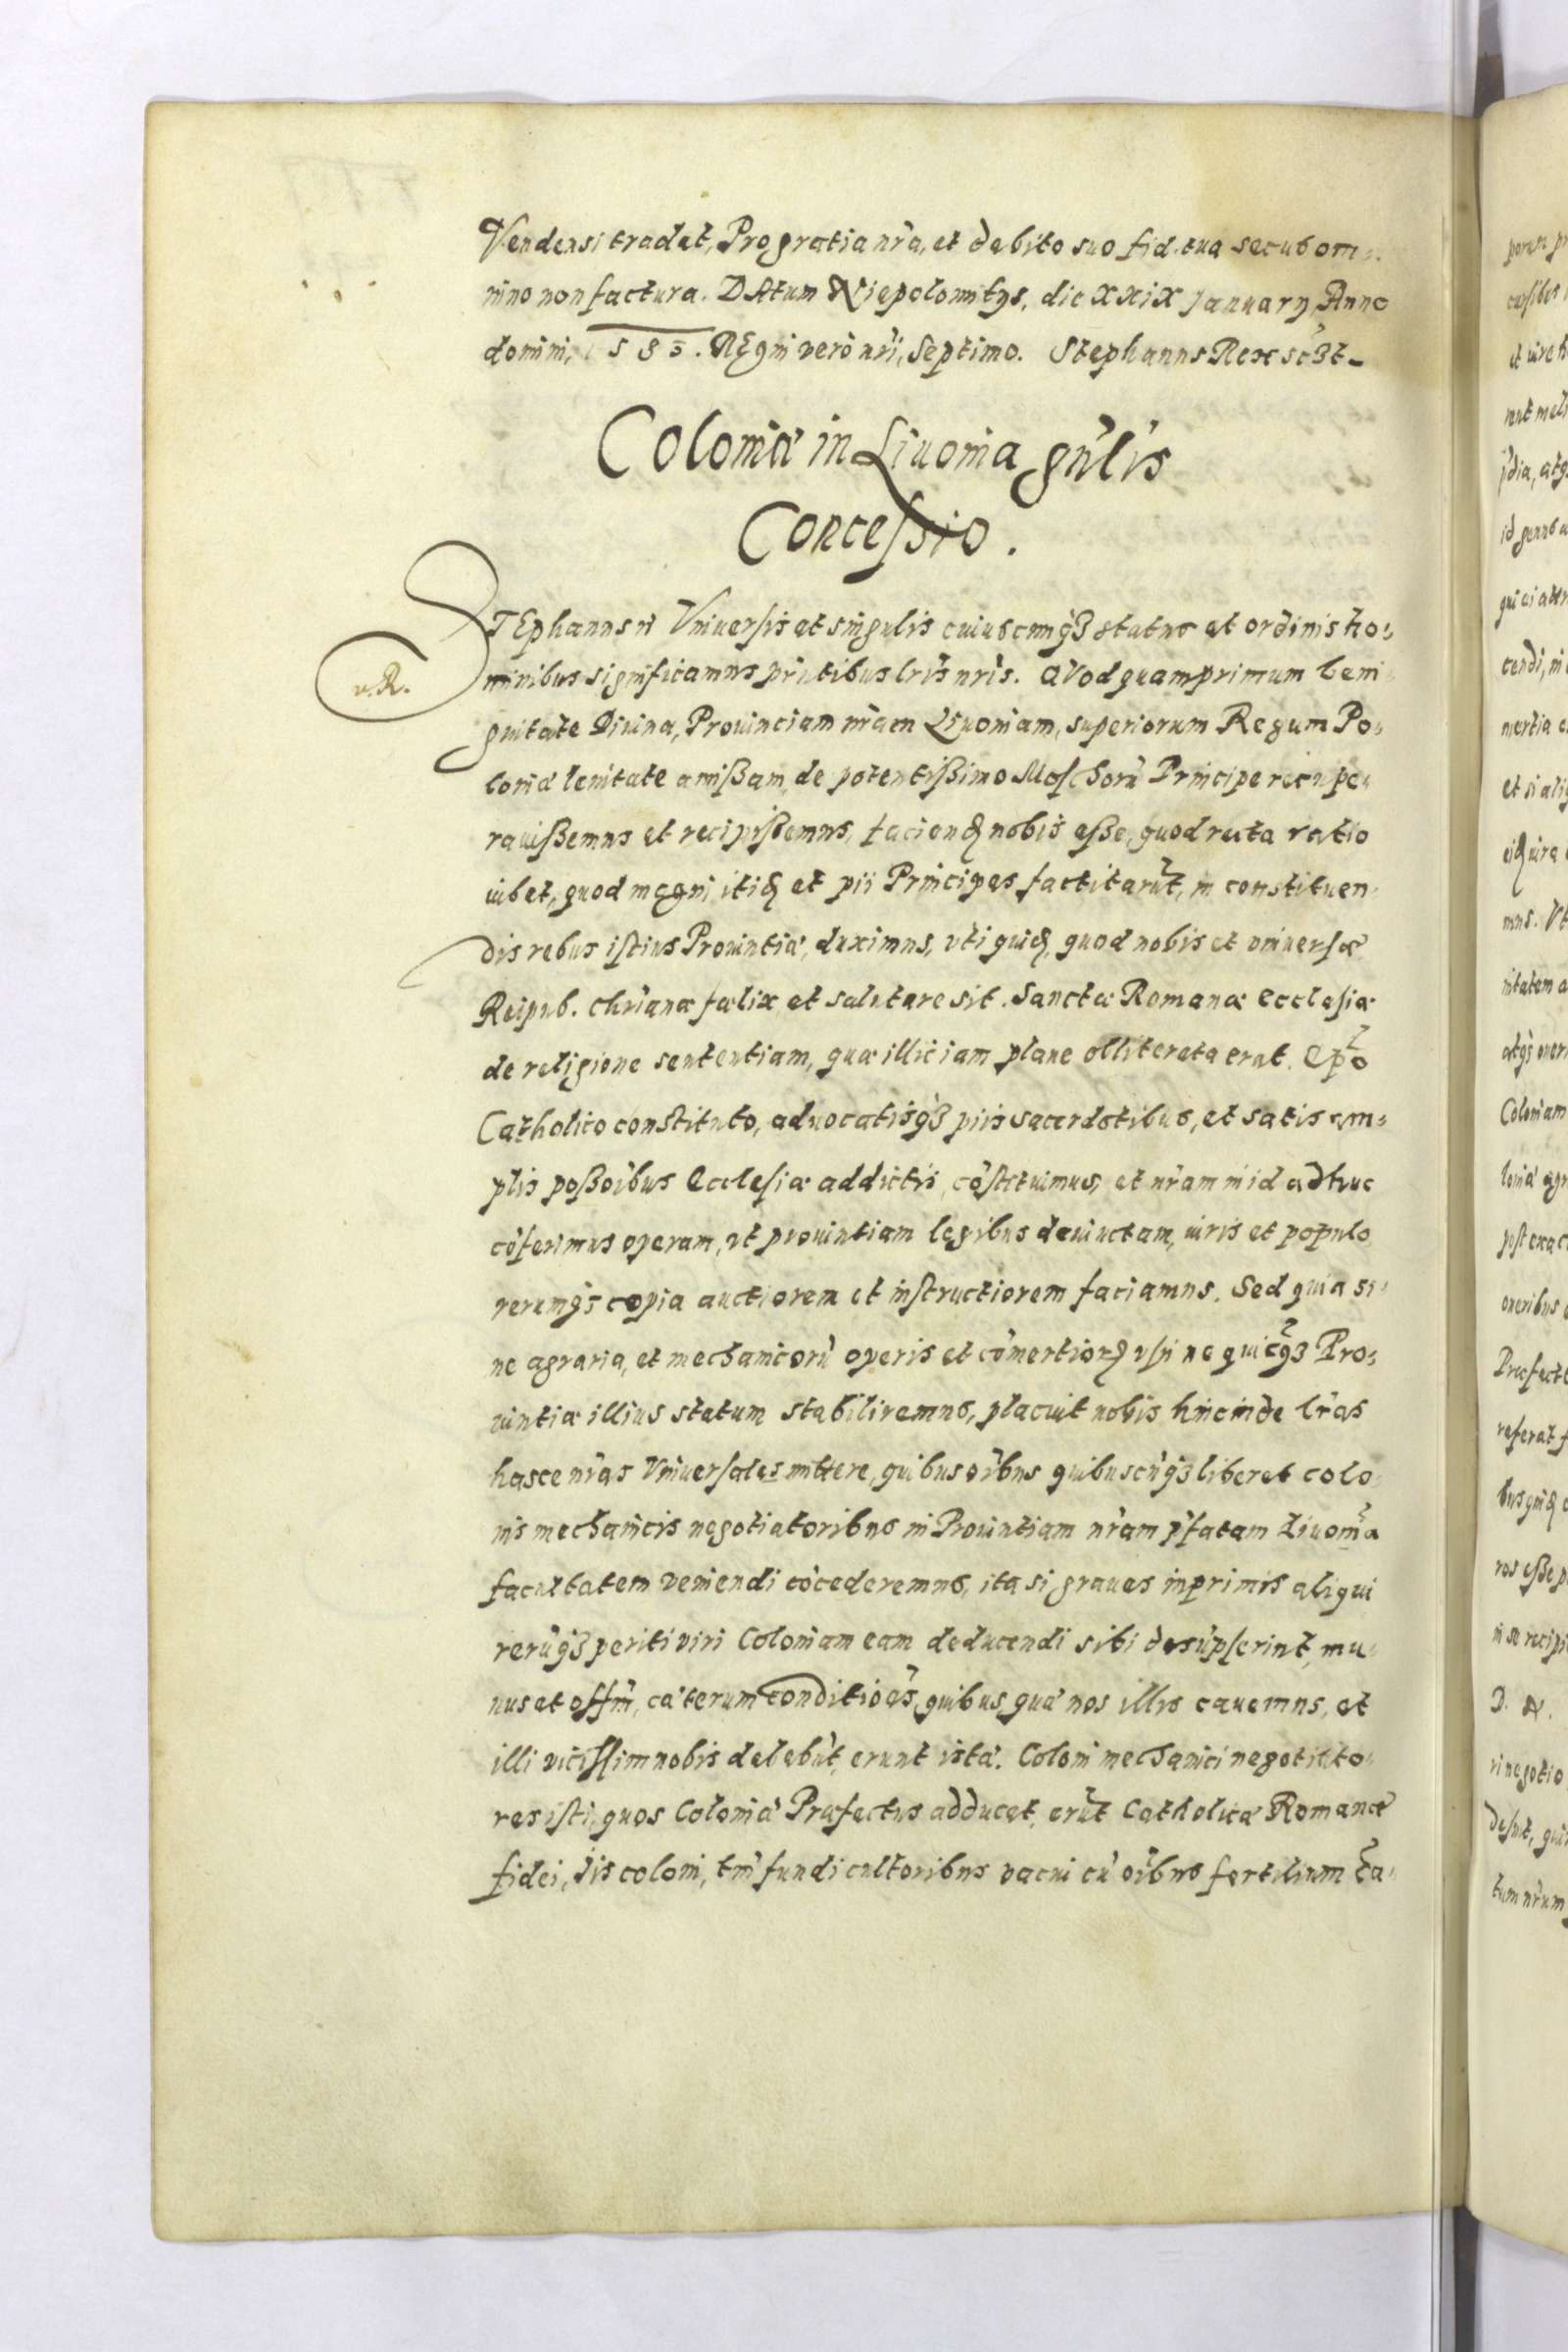 Vendensi tradet, Pro gratia nr̃a, et debito suo fid. tua secus om:
nino non factura. DAtum Niepolomitys, die XXIX January, Anno
domini, 1583. REgni vero nr̃i, Septimo. Stephanus Rex sc̃zt
Coloniæ in Livonia gñlis
Concessio.
STEphanus n̄ Vniuersis et singulis cuiuscunq̃ȝ status et ordinis ho:
u.R.
minibus significamus pñtibus lr̃is nr̃is. QVod quamprimum beni
gnitate Diuina, Prouinciam nr̃am Liuoniam, superiorum Regum Po:
loniæ lenitate amißam, de potentißimo Moschorũ Principe recupe:
rauißemus et recipißemus, faciendũ nobis eße, quod recta ratio
iubet, quod magni itidẽ et pii Principes factitarũt, in constituen
dis rebus istius Prouintiæ, duximus, vti quidẽ, quod nobis et vniuersæ
Reipub. chr̃ianæ fælix et salutare sit. Sanctæ Romanæ Ecclesiæ
de religione sententiam, quæ illic iam plane oblitereta erat. Ep̃o
Catholico constituto, aduocatisq̃ȝ piis sacerdotibus, et satis am:
plis poßoĩbus Ecclesiæ addictis, cõstituimus, et nr̃am in id adhuc
cõferimus operam, vt prouintiam legibus deuinctam, viris et populo
rerumq̃ȝ copia auctiorem et instructiorem faciamus. Sed quia si:
ne agraria, et mechanicorũ operis et cõmertiorũ vsu ne quicq̃ȝ Pro:
uintiæ illius statum stabiliremus, placuit nobis hincinde lr̃as
hasce nr̃as Vniuersales mittere, quibus oĩbus quibuscũq̃ȝ liberet colo
nis mechanicis negotiatoribus in Prouintiam nr̃am p̃fatam Liuoniã
facultatem veniendi cõcederemus, ita si graues inprimis aliqui
rerũq̃ȝ periti viri Coloniam eam deducendi sibi desũpserint, mu
nus et offm̃, cæterum conditioẽs, quibus quæ nos illis cauemus, et
illi vicissim nobis debebũt, erunt istæ. Coloni mechanici negotiato:
res isti, quos Coloniæ Præfectus adducet, erũt Catholicæ Romanæ
fidei, Iis coloni, tm̃ fundi cultoribus vacui cũ oĩbus fertilium ta